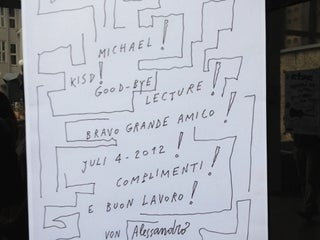 MICHAEL!
KISD!
GOOD-BYE
LECTURE!
BRAVO GRANDE AMICO!
JULI 4-2012!
COMPLIMENTI!
E BUON LAVORO!
VON Alessandro